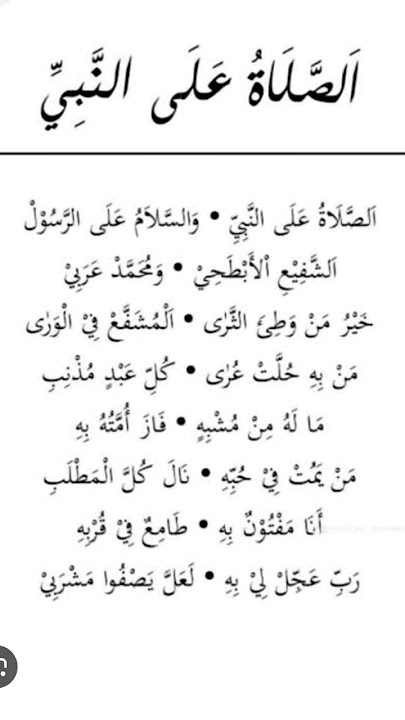 اَلصَّلَاةُ عَلَى النَّبِيِّ
اَلصَّلَاةُ عَلَى النَّبِيِّ • وَالسَّلاَمُ عَلَى الرَّسُوْلْ
اَلشَّفِيْعِ الْأَبْطَحِيْ • وَمُحَمَّدْ عَرَبِيْ
خَيْرُ مَنْ وَطِئَ الثَّرٰى • اَلْمُشَفَّعْ فِيْ الْوَرٰى
مَنْ بِهِ حُلَّتْ عُرٰى • كُلِّ عَبْدٍ مُذْنِبِ
مَا لَهُ مِنْ مُشْبِهٍ • فَازَ أُمَّتُهُ بِهِ
مَنْ يَمُتْ فِيْ حُبِّهِ • نَالَ كُلَّ الْمَطْلَبِ
أَنَا مَفْتُوْنٌ بِهِ • طَامِعٌ فِيْ قُرْبِهِ
رَبِّ عَجِّلْ لِيْ بِهِ • لَعَلَّ يَصْفُوا مَشْرَبِيْ